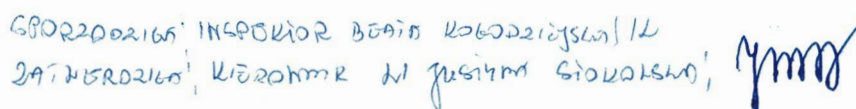 SPORZĄDZIŁA: INSPEKTOR BEATA KOŁODZIEJSKA/
ZATWIERDZIŁA: KIEROWNIK JUSTYNA SIOKALSKA;